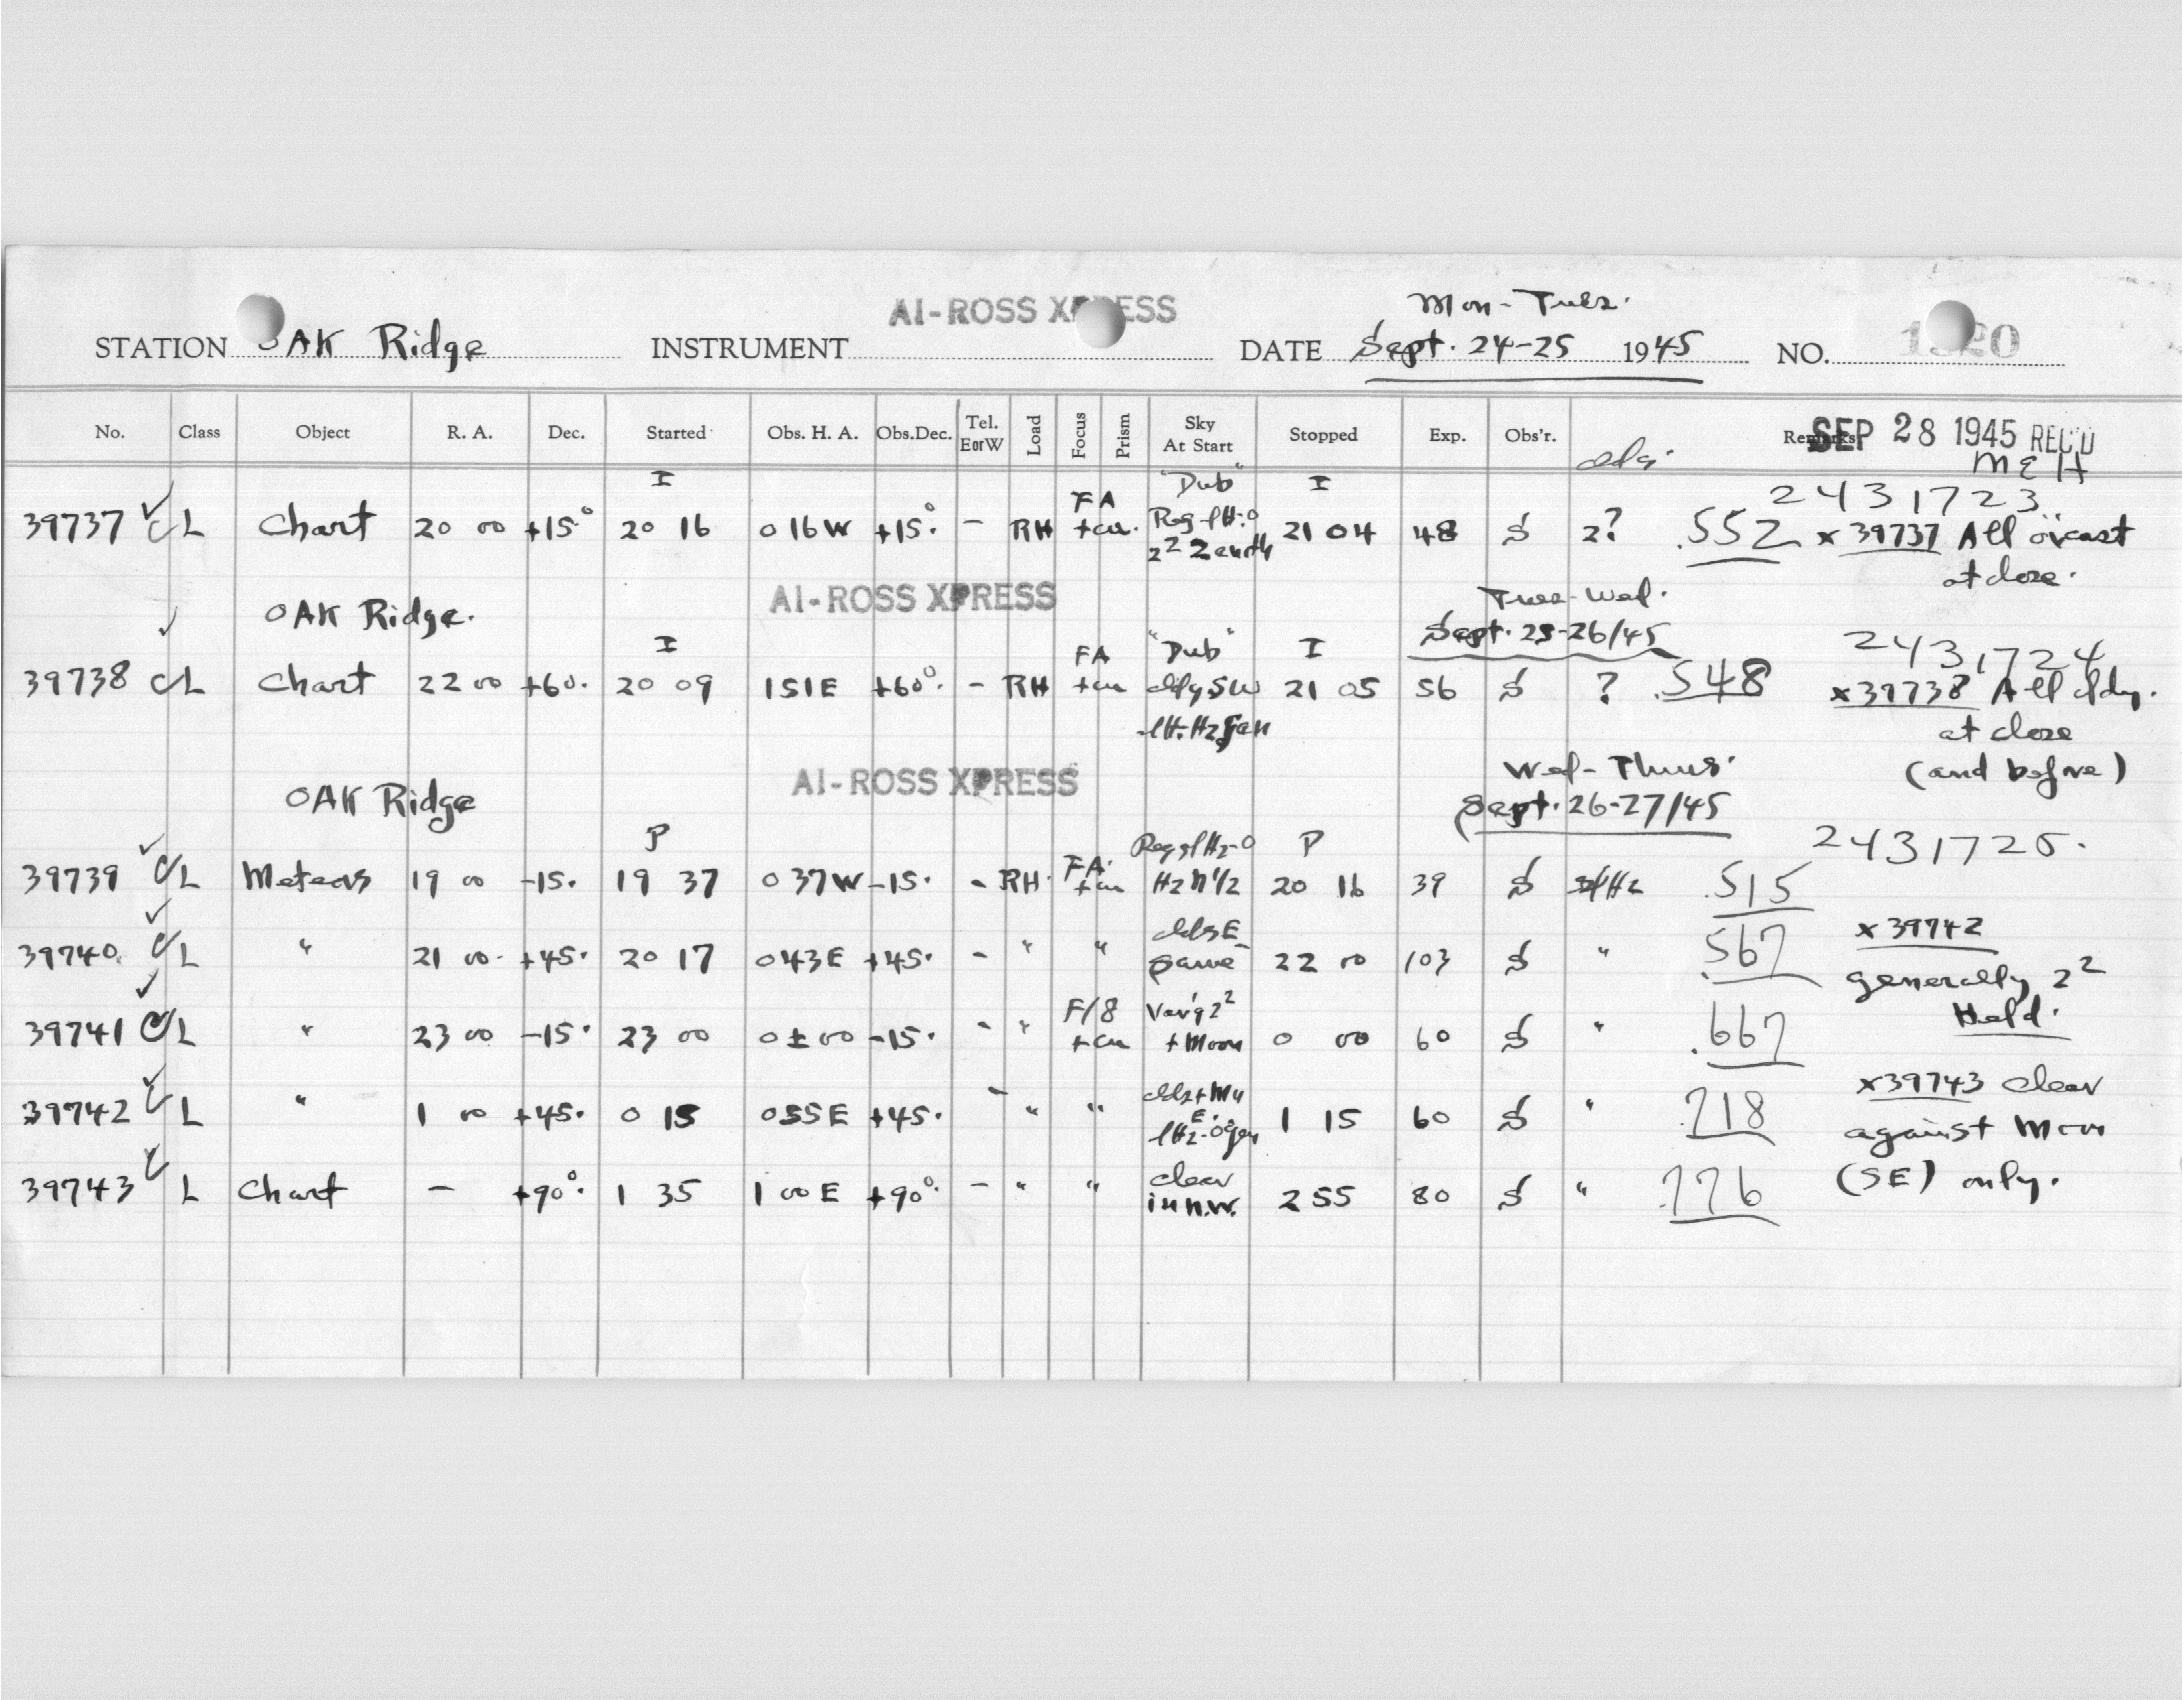 AI-ROSS XPRESS Mon-Tues.
STATION OAK Ridge INSTRUMENT DATE Sept. 24-25 1945 NO.
No. Class Object R. A. Dec. Started Obs. H. A. Obs.Dec. Tel. EorW Load Focus Prism Sky At Start Stopped Exp. Obs'r. Remarks SEP 28 1945 REC'D
MEH
I "Dub" I 2431723
39737 CL Chart 20 00 +15° 20 16 0 16 W +15° - RH FA Zenith 21 04 48 S 2? .552 x 39737 All o'cast
at close.
OAK Ridge. AI-ROSS XPRESS Tues-Wed.
Sept. 25-26/45
I FA "Dub" I 2431724
39738 CL Chart 22 00 +60. 20 09 1 51 E +60°. - RH SW 21 05 56 S ? .548 x 39738 All cldy.
at close
OAK Ridge AI-ROSS XPRESS Wed-Thurs. (and before)
Sept. 26-27/45
P P 2431725.
39739 CL Meteors 19 00 -15. 19 37 0 37 W -15. - RH. FA. Hz N 1/2 20 16 39 S .515
39740. CL " 21 00. +45. 20 17 0 43 E +45. - " " same 22 00 103 S " .567 x 39742
generally 2²
39741 CL " 23 00 -15. 23 00 0 ± 00 -15. - " F/8 Var'g 2² + Moon 0 00 60 S " .667 Held.
39742 CL " 1 00 +45. 0 15 0 55 E +45. - " " 1 15 60 S " .718 x 39743 clear
against Moon
39743 CL Chart - +90°. 1 35 1 00 E +90°. - " " clear in N.W. 2 55 80 S " .776 (SE) only.